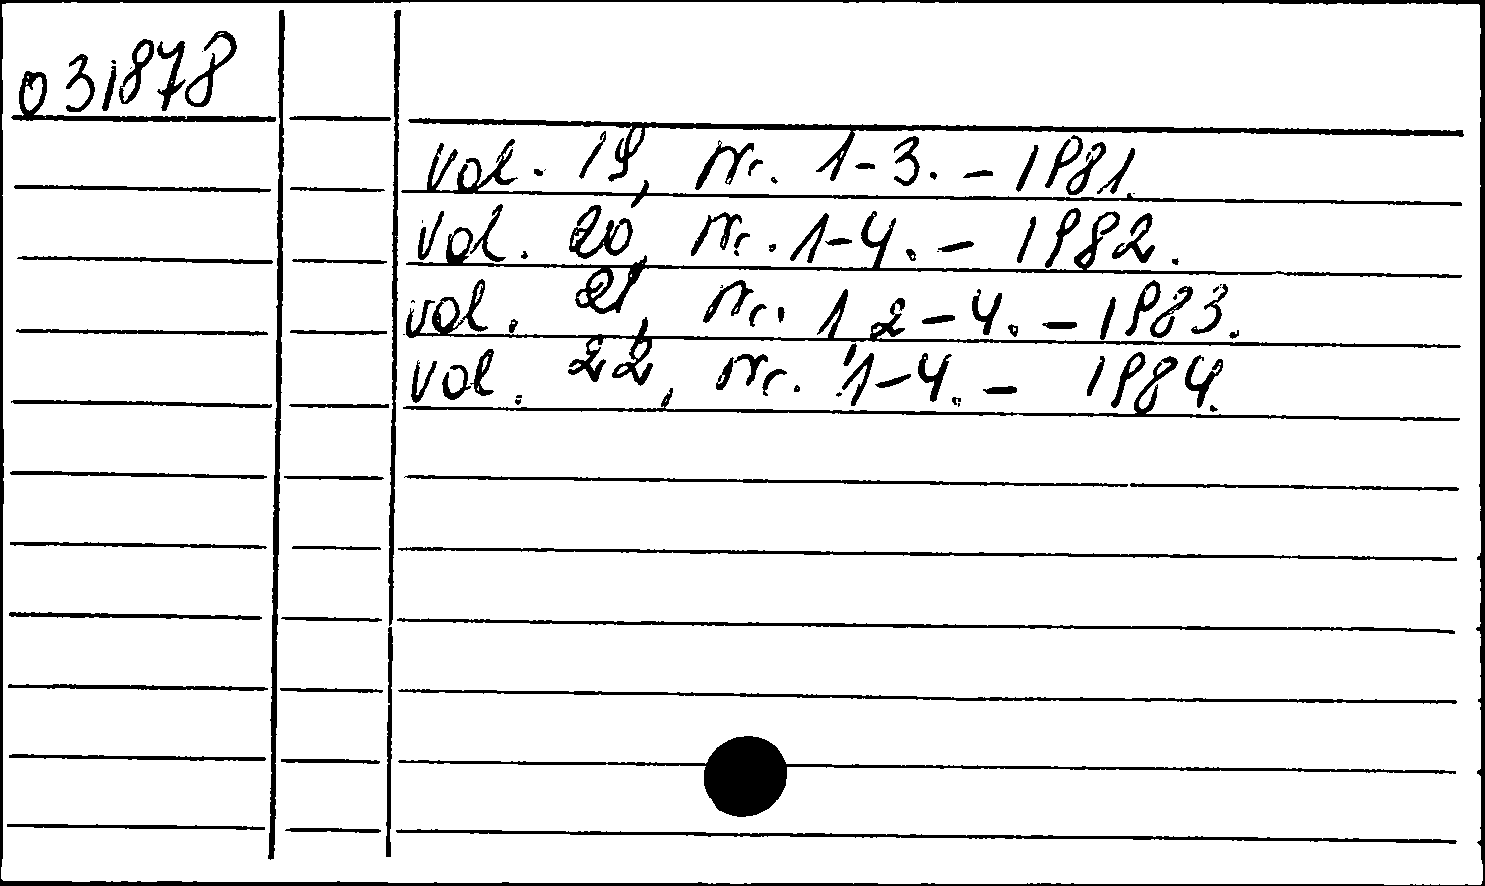 031878
vol. 19, Nr. 1-3. - 1981.
vol. 20, Nr. 1-4. - 1982.
vol. 21, Nr. 1,2-4. - 1983.
vol. 22, Nr. 1-4. - 1984.